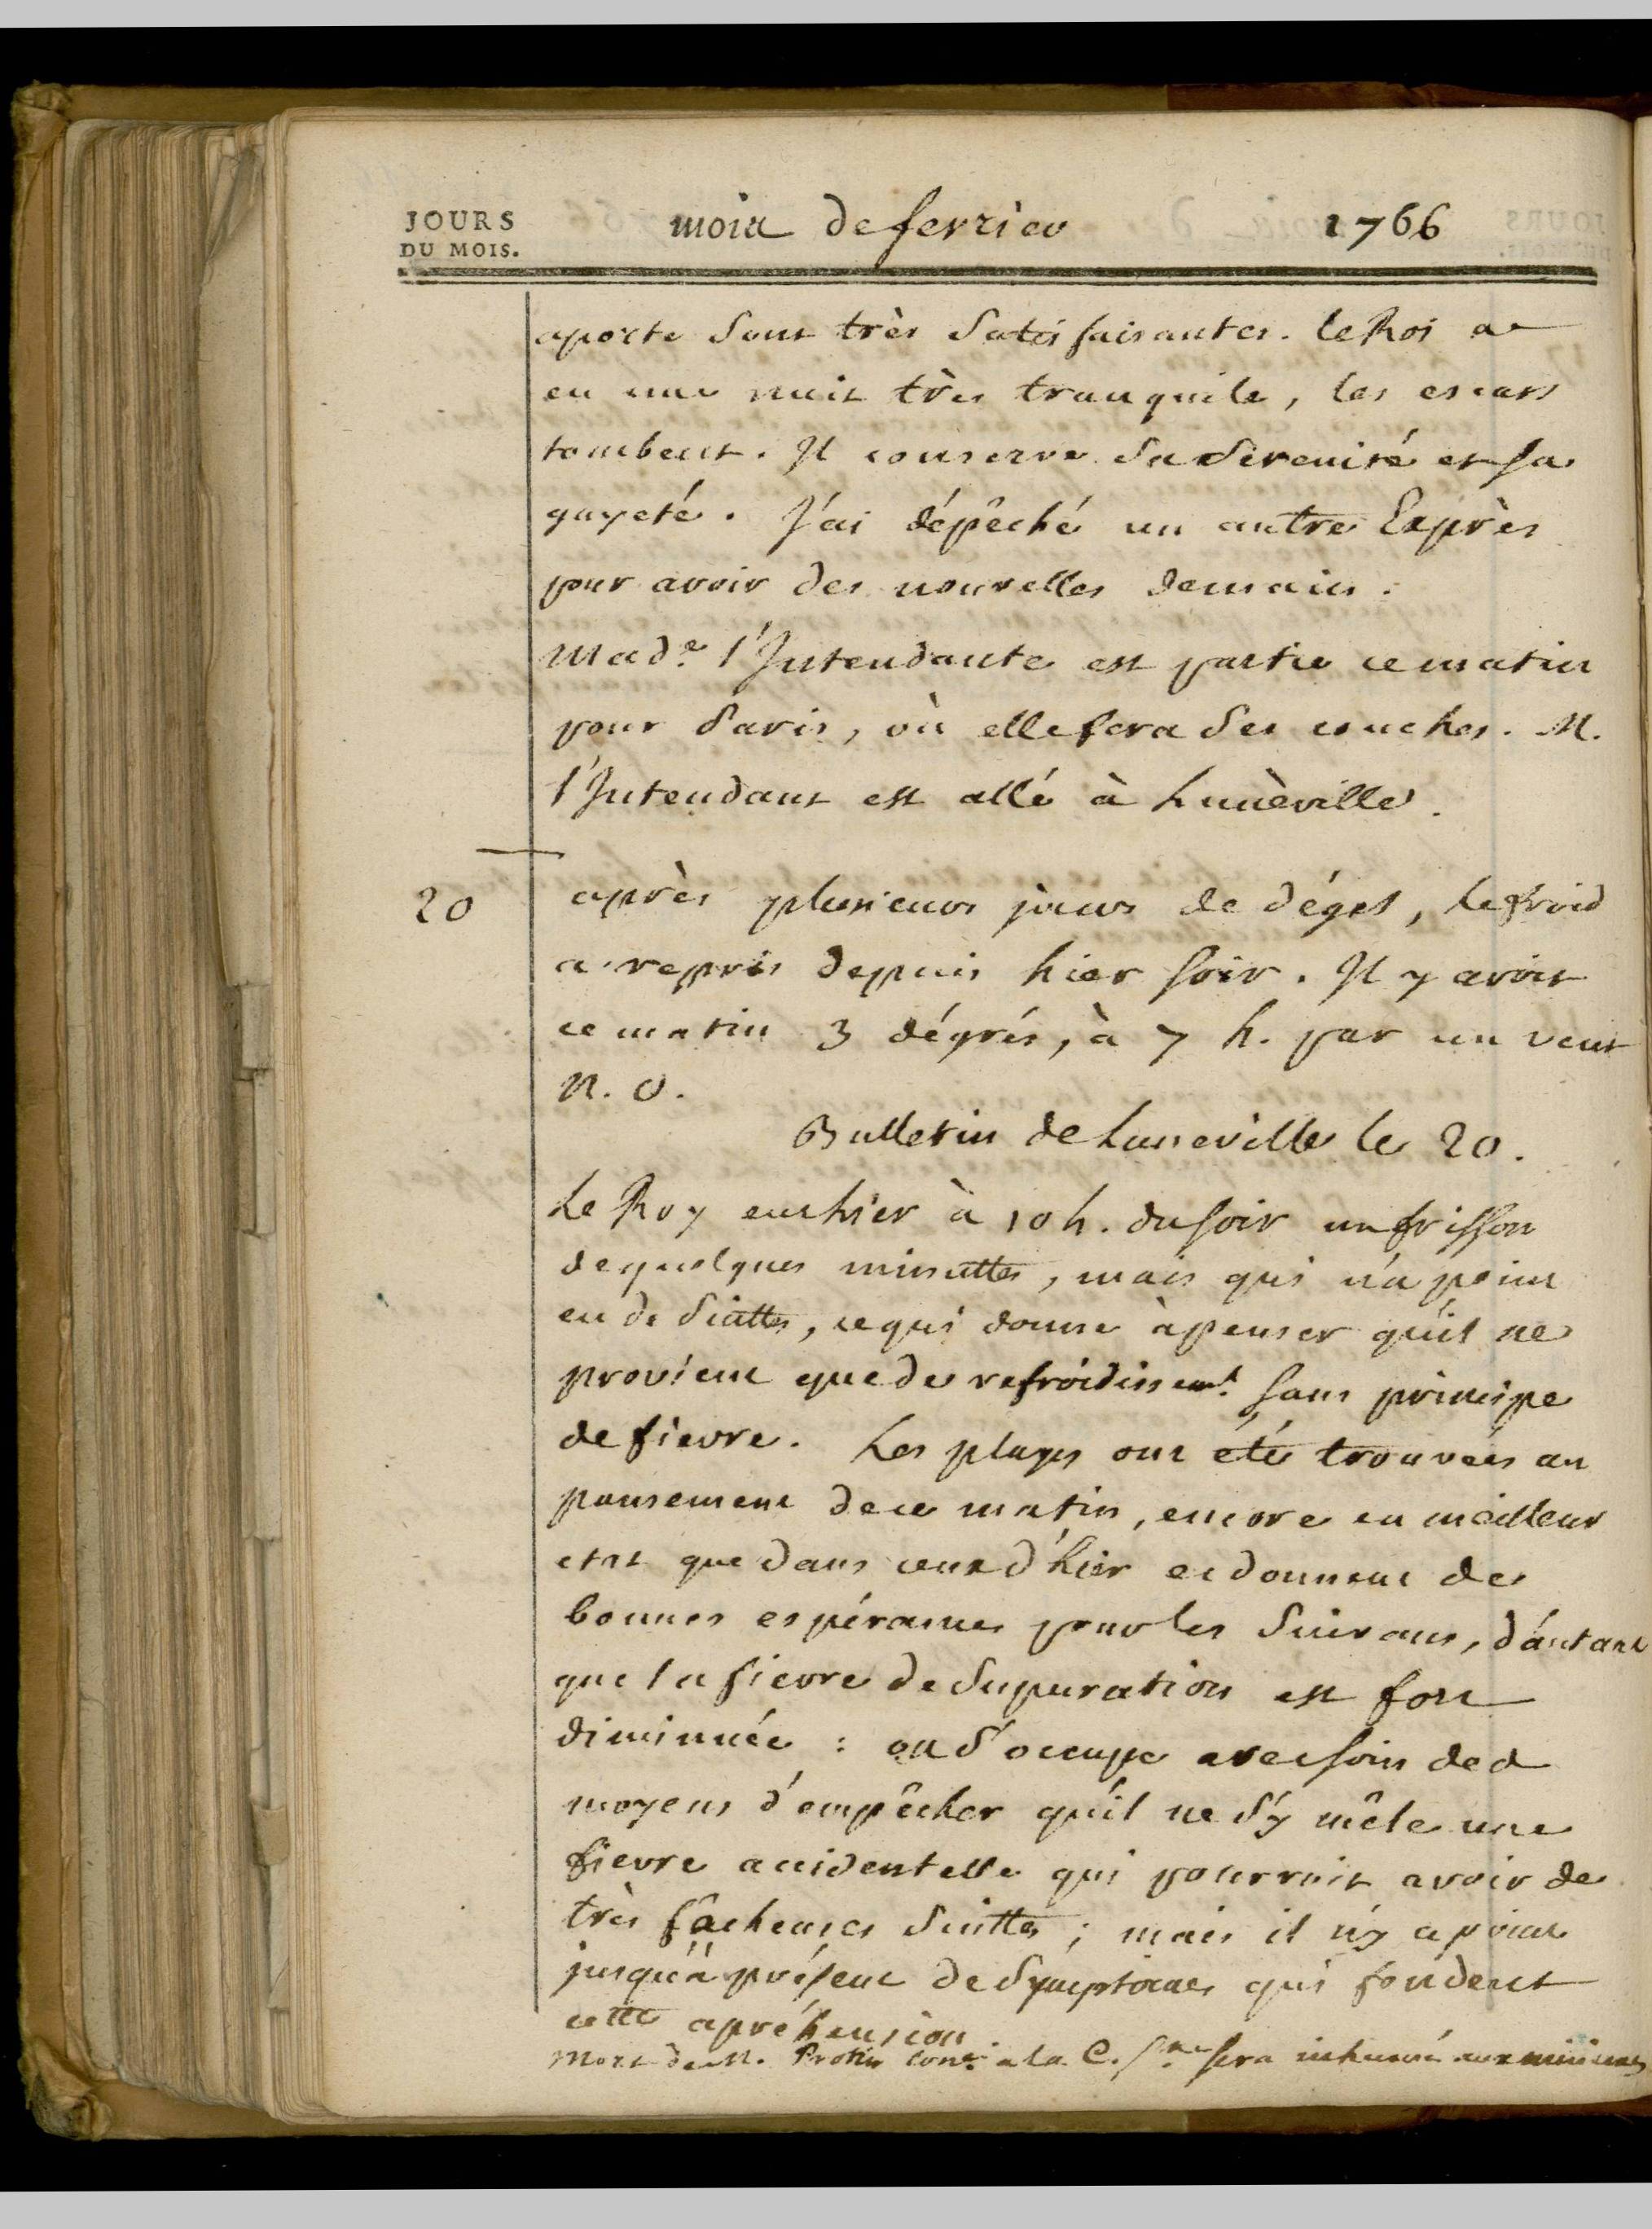 JOURS
DU MOIS.
mois de fevrier 1766
aporte sont très satisfaisantes. le Roi a
eu une nuit très tranquile, les escars
tombent. Il conserve sa sérénité et sa
gayeté. J'ai dépêché un autre Exprès
pour avoir des nouvelles demain.
Mad.e l'Intendante est partie ce matin
pour Paris, où elle fera ses couches. M.
l'Intendant est allé à Lunèville.
20 après plusieurs jours de dégel, le froid
a repris depuis hier soir. Il y avoit
ce matin 3 dégrés, à 7 h. par un vent
N. O.
Bulletin de Luneville le 20.
Le Roy eut hier à 10 h. du soir un frisson
de quelques minuttes, mais qui n'a point
eu de suittes, ce qui donne à penser qu'il ne
provient que de refroidissem.t sans principe
de fievre. Les playes ont été trouvées au
pansement de ce matin, encore en meilleur
etat que dans ceux d'hier et donnent de
bonnes espérances pour les suivans, d'autant
que la fievre de supuration est fort
diminuée : on s'occupe avec soin des
moyens d'empêcher qu'il ne s'y mêle une
fievre accidentelle qui pourroit avoir de
très fâcheuses suittes ; mais il n'y a point
jusqu'à présent de symptomes qui fondent
cette apréhension.
Mort de M. Protin Con.er a la C. S.ne sera inhumé aux minimes